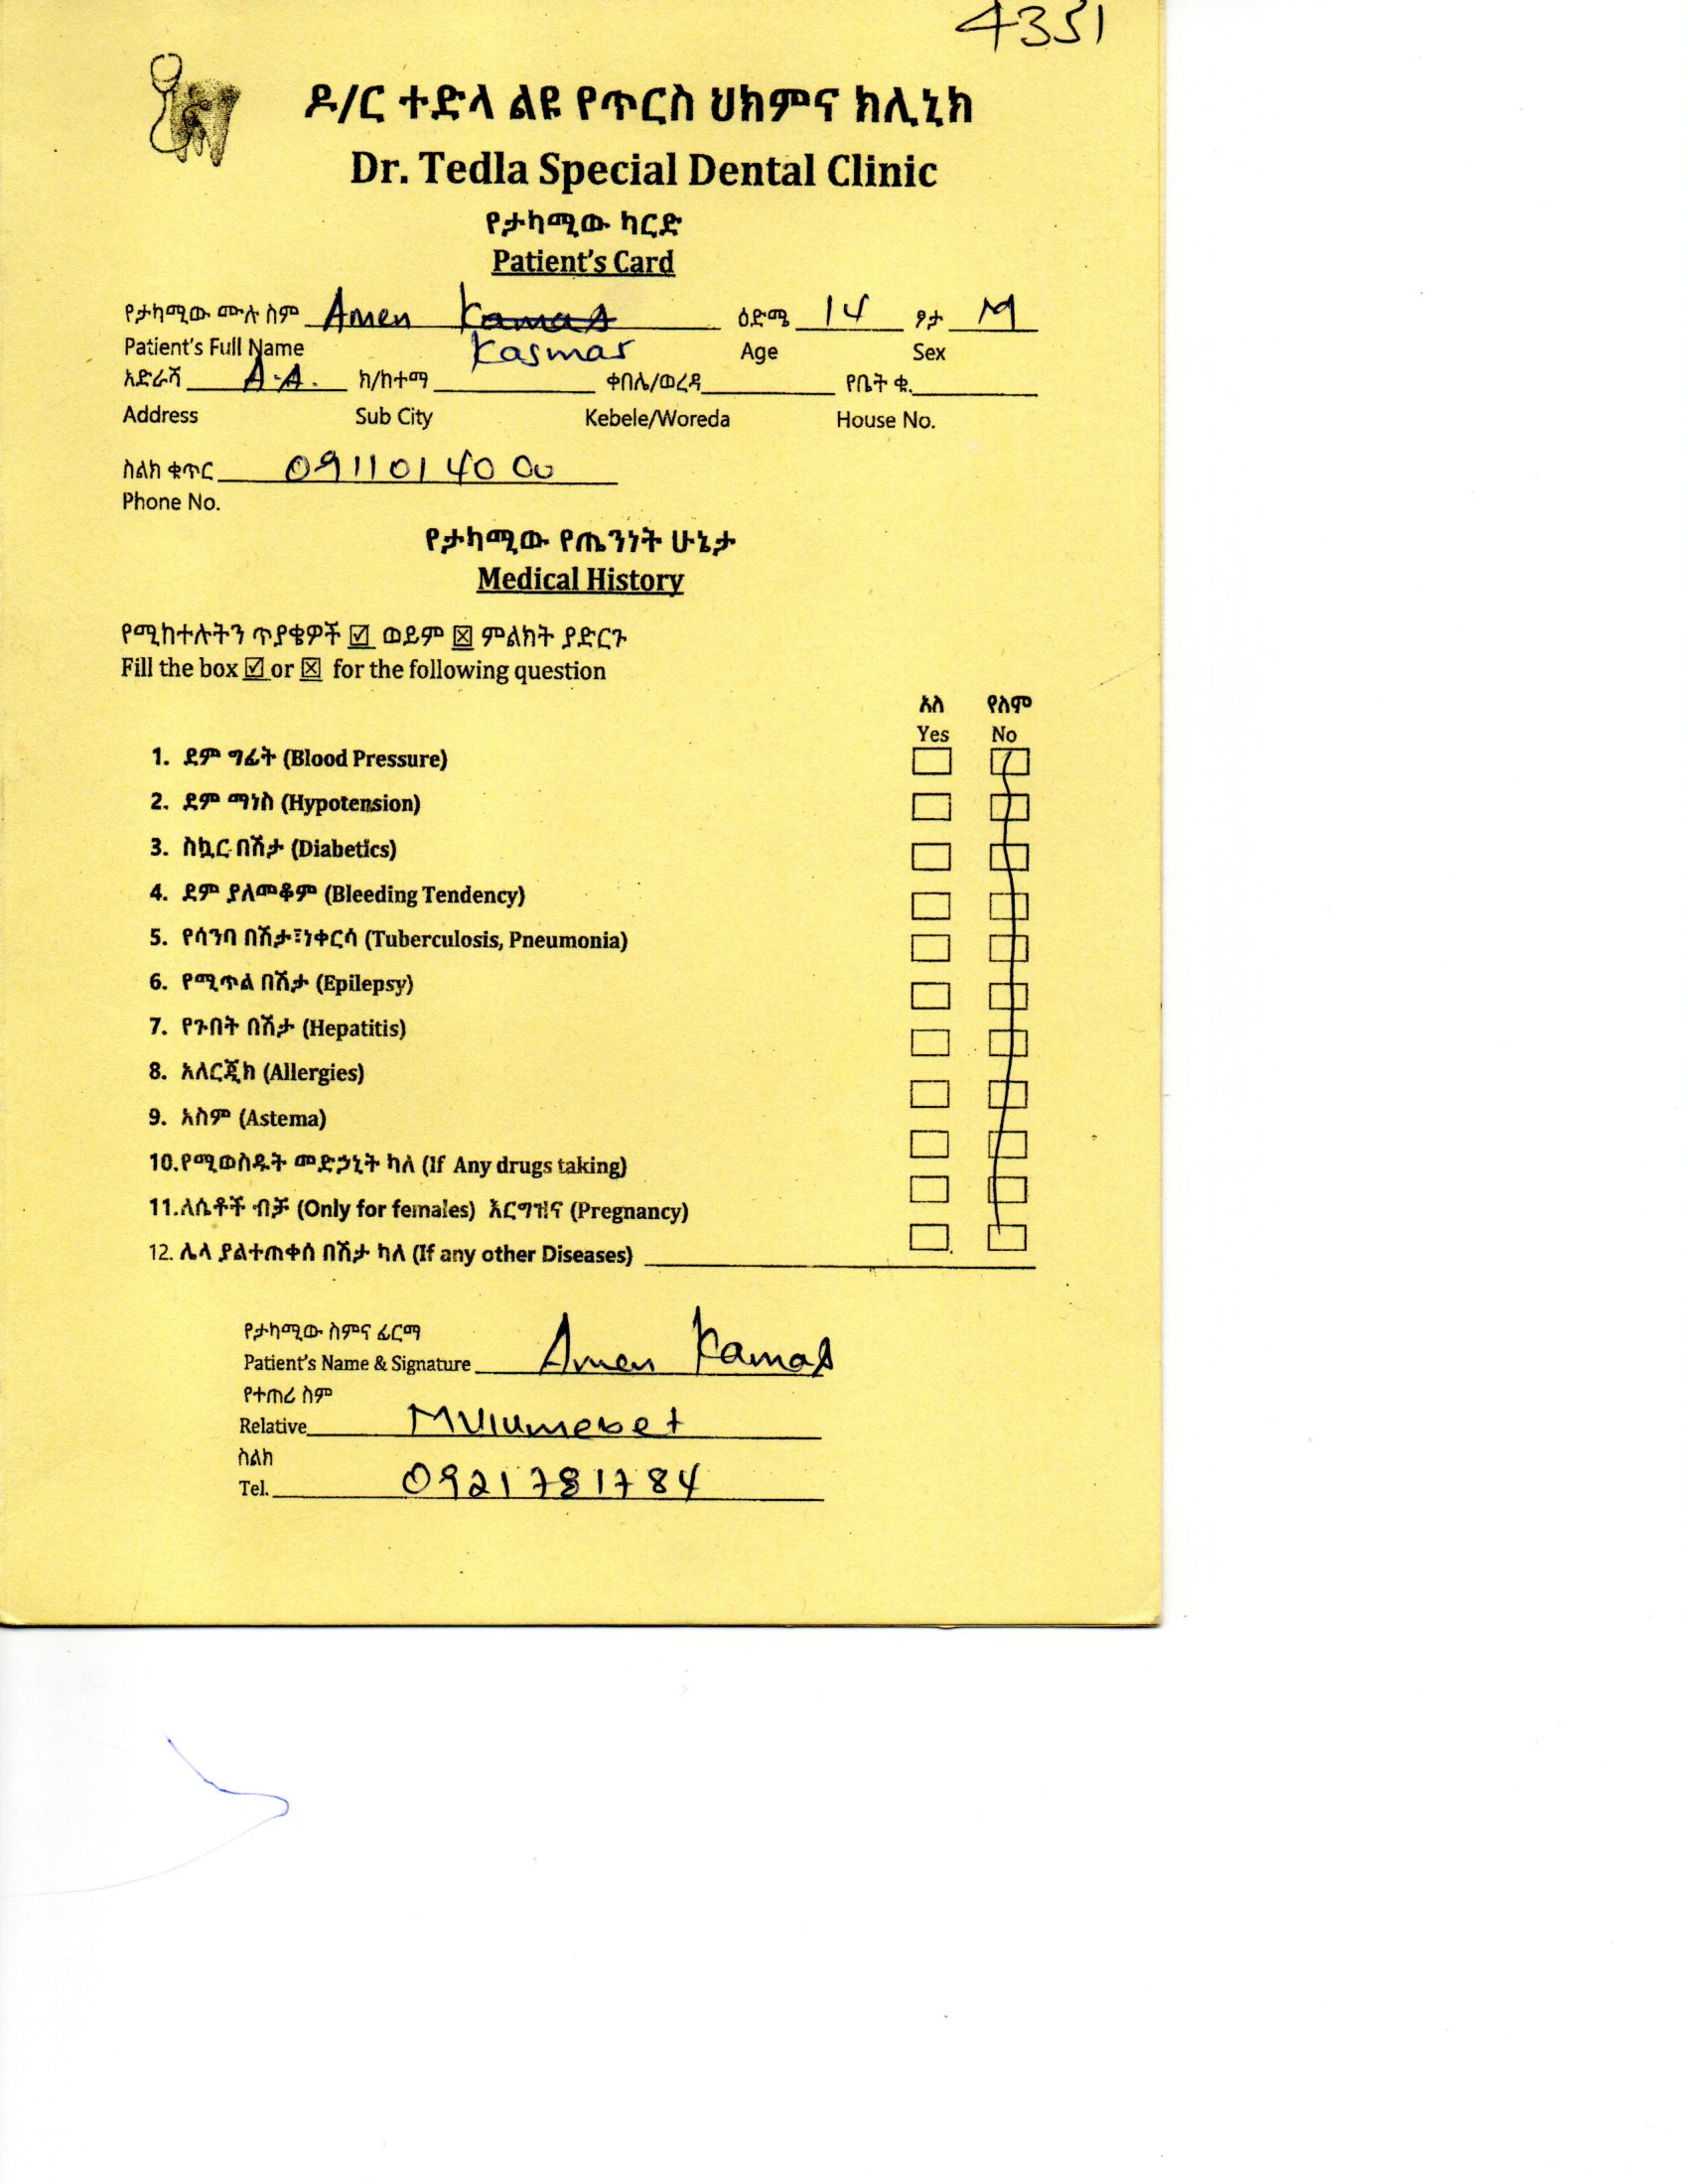 4351
ዶ/ር ተድላ ልዩ የጥርስ ህክምና ክሊኒክ
Dr. Tedla Special Dental Clinic
የታካሚው ካርድ
Patient's Card
የታካሚው ሙሉ ስም Amen Kamas ዕድሜ 14 ፆታ M
Patient's Full Name Kasmar Age Sex
አድራሻ A.A. ክ/ከተማ ቀበሌ/ወረዳ የቤት ቁ.
Address Sub City Kebele/Woreda House No.
ስልክ ቁጥር 0911014000
Phone No.
የታካሚው የጤንነት ሁኔታ
Medical History
የሚከተሉትን ጥያቄዎች ☑ ወይም ☒ ምልክት ያድርጉ
Fill the box ☑ or ☒ for the following question
አለ የለም
Yes No
1. ደም ግፊት (Blood Pressure)
2. ደም ማነስ (Hypotension)
3. ስኳር በሽታ (Diabetics)
4. ደም ያለመቆም (Bleeding Tendency)
5. የሳንባ በሽታ፣ነቀርሳ (Tuberculosis, Pneumonia)
6. የሚጥል በሽታ (Epilepsy)
7. የጉበት በሽታ (Hepatitis)
8. አለርጂክ (Allergies)
9. አስም (Astema)
10.የሚወስዱት መድኃኒት ካለ (If Any drugs taking)
11.ለሴቶች ብቻ (Only for females) እርግዝና (Pregnancy)
12. ሌላ ያልተጠቀሰ በሽታ ካለ (If any other Diseases)
የታካሚው ስምና ፊርማ
Patient's Name & Signature Amen Kamas
የተጠሪ ስም
Relative Mulumebet
ስልክ
Tel. 0921781784